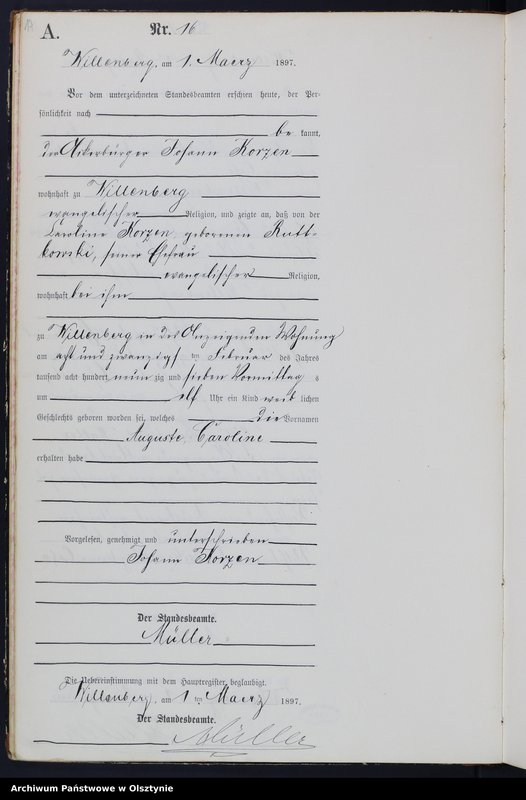 A.
Nr. 16
Willenberg, am 1. Maerz 1897.
Vor dem unterzeichneten Standesbeamten erschien heute, der Per-
sönlichkeit nach
be kannt,
der Ackerbürger Johann Korzen
wohnhaft zu Willenberg
evangelischer Religion, und zeigte an, daß von der
Caroline Korzen geborenen Rutt-
kowski, seiner Ehefrau
evangelischer Religion,
wohnhaft bei ihm
zu Willenberg in des Anzeigenden Wohnung
am acht und zwanzigs ten Februar des Jahres
tausend acht hundert neun zig und sieben Vormittag s
um elf Uhr ein Kind weib lichen
Geschlechts geboren worden sei, welches die Vornamen
Auguste, Caroline
erhalten habe
Vorgelesen, genehmigt und unterschrieben
Johann Korzen
Der Standesbeamte.
Müller
Die Uebereinstimmung mit dem Hauptregister beglaubigt.
Willenberg, am 1 ten Maerz 1897.
Der Standesbeamte.
Müller
Archiwum Państwowe w Olsztynie